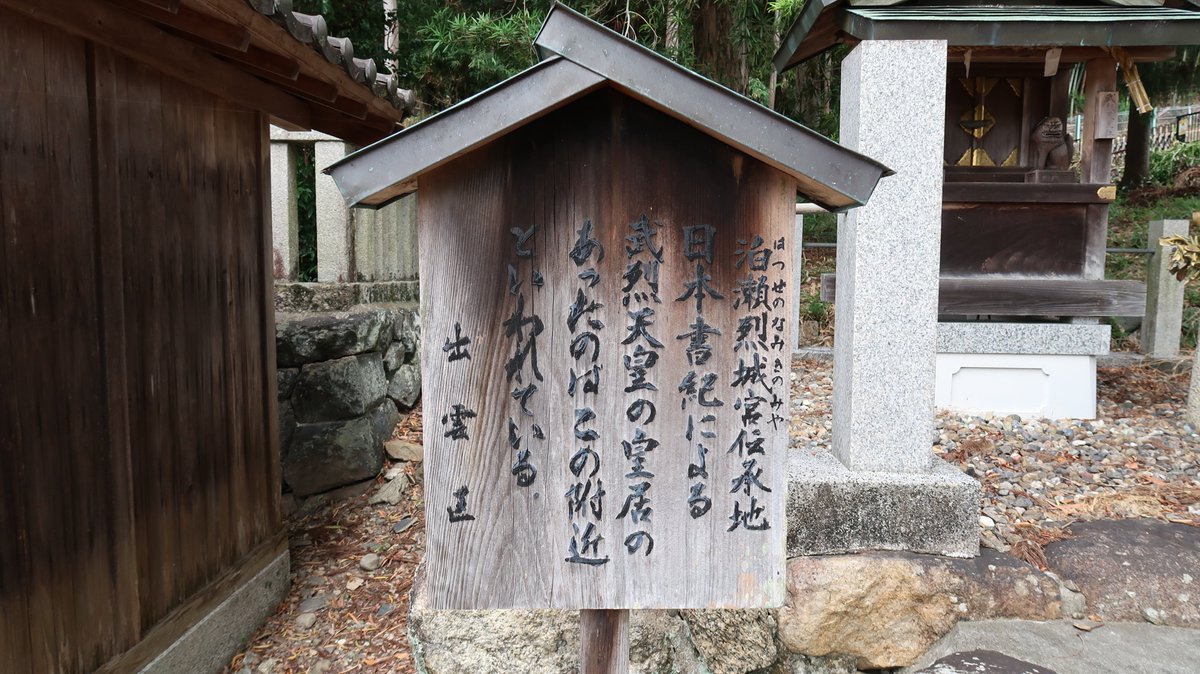 はつせのなみきのみや
泊瀬烈城宮伝承地
日本書紀による
武烈天皇の皇居の
あったのはこの附近
といわれている.
出雲区